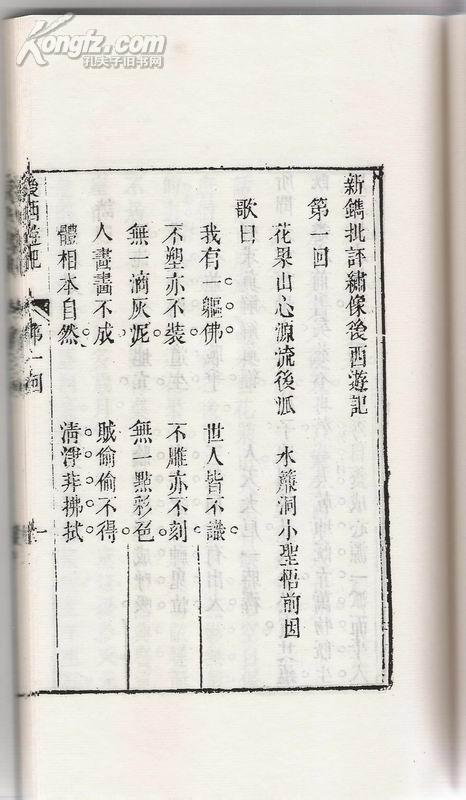 Kongfz.com
孔夫子旧书网
新鐫批評繡像後西遊記
第一回
花果山心源流後派 水簾洞小聖悟前因
歌曰
我有一軀佛 世人皆不識
不塑亦不裝 不雕亦不刻
無一滴灰泥 無一點彩色
人畫畫不成 賊偷偷不得
體相本自然 清淨非拂拭
後西遊記 第一回